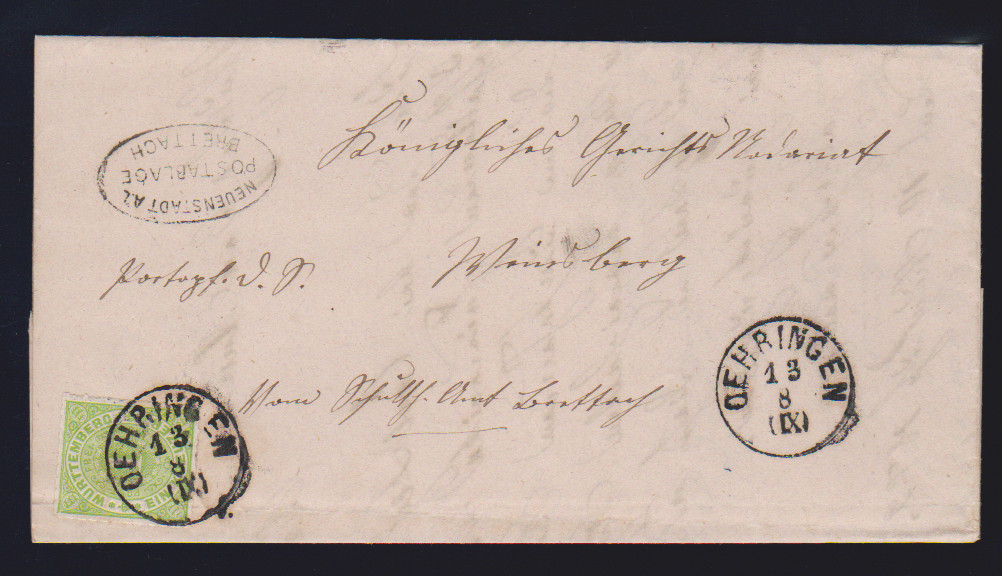 Königliches Gerichts Notariat
NEUENSTADT A.L.
POSTABLAGE
BRETTACH
Weinsberg
Portopf. D. S.
OEHRINGEN
13
8
(IX)
Vom Schulth. Amt Brettach
OEHRINGEN
13
8
(IX)
WÜRTTEMBERG